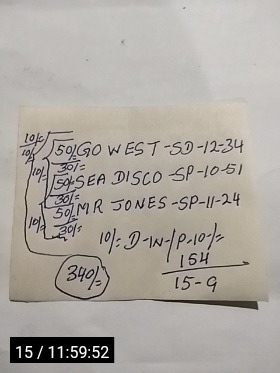 10/=
10/= 50/= GO WEST-SD-12-34
30/=
10/= 50/= SEA DISCO-SP-10-51
30/=
10/= 50/= MR JONES-SP-11-24
30/=
10/= D-W-/P-10-/=
340/=
154
15-9
15 / 11:59:52